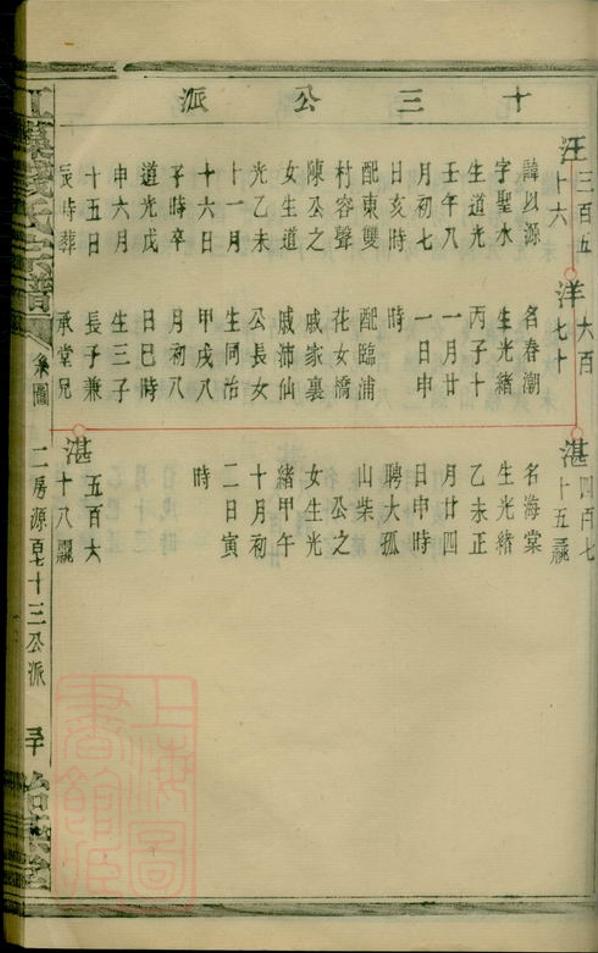 十三公派
汪三百五十六
諱以源
字聖水
生道光
壬午八
月初七
日亥時
配東雙
村容聲
陳公之
女生道
光乙未
十一月
十六日
子時卒
道光戊
申六月
十五日
辰時葬
洋六百七十
名春潮
生光緒
丙子十
一月廿
一日申
時
配臨浦
花女橋
戚家裏
戚沛仙
公長女
生同治
甲戌八
月初八
日巳時
生三子
長子兼
承堂兄
湛四百七十五
名海棠
生光緒
乙未正
月廿四
日申時
聘大孤
山柴
公之
女生光
緒甲午
十月初
二日寅
時
湛五百六十八
氏宗譜
系圖
二房源百七十三公派
上海圖書館藏